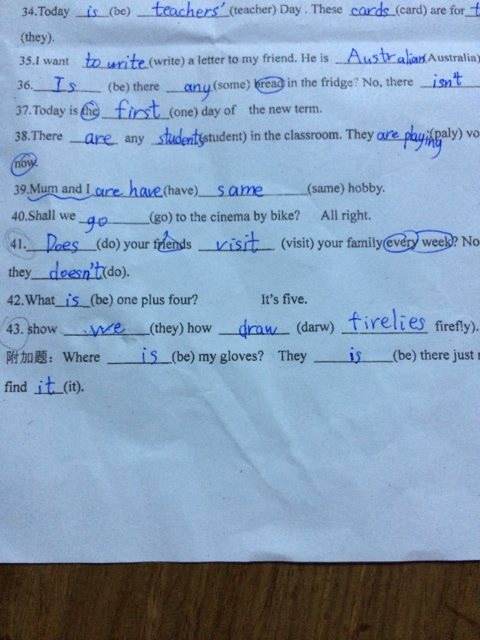 34.Today is (be) teachers' (teacher) Day . These cards (card) are for t
(they).
35.I want to write (write) a letter to my friend. He is Australian (Australia)
36. Is (be) there any (some) bread in the fridge? No, there isn't
37.Today is the first (one) day of the new term.
38.There are any students (student) in the classroom. They are playing (paly) vo
now.
39.Mum and I are have (have) same (same) hobby.
40.Shall we go (go) to the cinema by bike? All right.
41. Does (do) your friends visit (visit) your family every week? No
they doesn't (do).
42.What is (be) one plus four? It's five.
43. show we (they) how draw (darw) firelies firefly).
附加题: Where is (be) my gloves? They is (be) there just
find it (it).